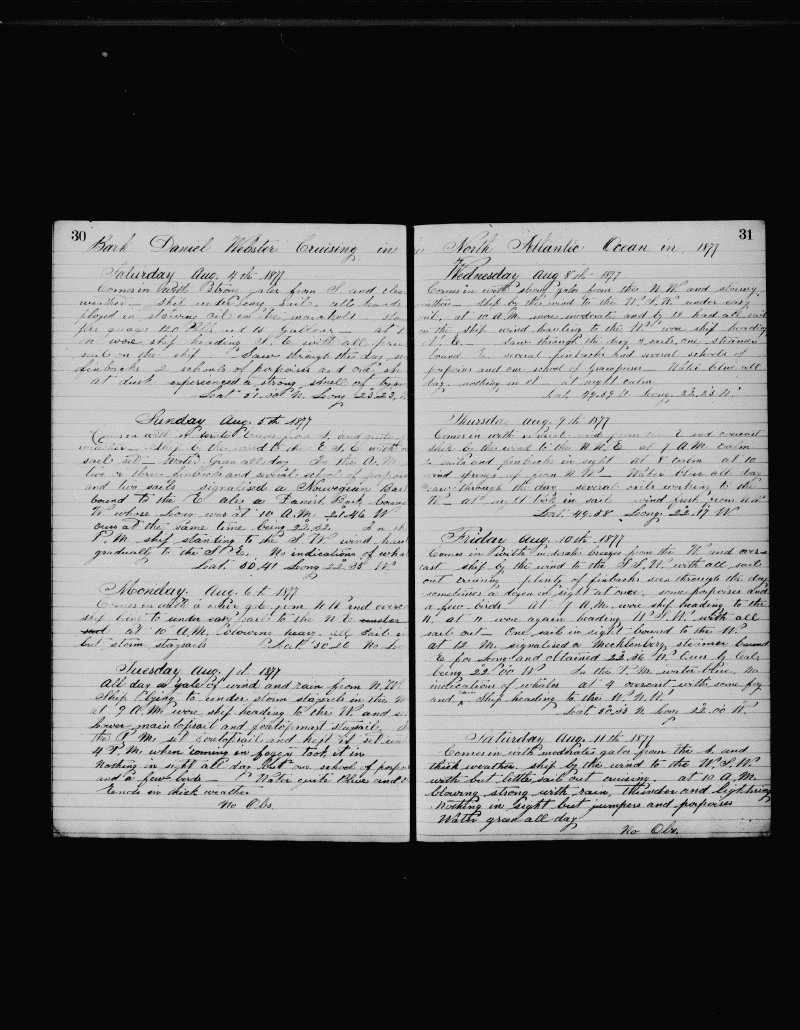 30
Bark Daniel Webster Cruising in
Saturday Aug. 4th 1877
Comes in with strong gales from S. and
weather ship under easy sail, all hands
employed in stowing oil in the
at 1
wore ship heading S. E. with all
sail on the ship Saw through the day
finbacks 2 schools of porpoises and one
at dusk experienced a strong smell of
Lat. Long 23.23
Sunday Aug. 5th 1877
Comes in with from S. and
weather ship by the wind to the E. S. E. with
sails set Water green all day In the A. M.
two or three finbacks and several schools of
and two sails signalised a Norwegian Bark
bound to the E. also a Danish Bark bound
W. whose Long. was at 10 A. M. 21.46 W
ours at the same time being 22.32
P. M. ship standing to the S. W. wind
gradually to the S. E. No indications of
Lat. 50.41 Long 22.35 W.
Monday. Aug. 6th 1877
Comes in with a gale from N. W. and
ship to under easy sail to the N. E.
sail at 10 A. M. blowing heavy, all sail in
but storm staysails Lat. No
Tuesday Aug. 7th 1877
All day a gale of wind and rain from N. W.
Ship lying to under storm staysails
at 9 A. M. wore ship heading to the W. and
lower main topsail and foretopmast staysail.
the P. M. set and kept it set
4 P. M. when coming in foggy took it in
Nothing in sight all day but one school of
and a few birds Water quite blue and
Ends in thick weather
No Obs.
31
North Atlantic Ocean in 1877
Wednesday Aug 8th 1877
Comes in with strong gales from the N. W. and
ship by the wind to the W. S. W. under easy
sail, at 10 A. M. more moderate and by 12 had all sail
on the ship wind hauling to the W. wore ship heading
N. E. Saw through the day, 2 sails, one steamer
bound E. several finbacks and several schools of
porpoises and one school of Grampuses Water blue all
day, nothing in it at night calm
Lat. 49.59 N. Long. 22.23 W.
Thursday Aug. 9th 1877
Comes in with wind from E. and overcast
ship by the wind to the N. N. E. at 7 A. M. calm
2 sails and finbacks in sight at 8 calm at 10
wind springs up from N. W. Water blue all day
saw through the day several sails working to the
W. at night took in sail wind fresh from
Lat. 49.58 Long. 22.17 W
Friday Aug. 10th 1877
Comes in with moderate breezes from the W. and over-
cast ship by the wind to the S. S. W. with all sail
out cruising plenty of finbacks seen through the day
sometimes a dozen in sight at once, some porpoises and
a few birds At 7 A. M. wore ship heading to the
N. at 11 wore again heading W. S. W. with all
sail out One sail in sight bound to the W.
at 12 M. signalised a Mecklenberg steamer bound
E. for Long. and obtained 22.36 W. Ours by Calc
being 22.00 W In the P. M. water blue. No
indications of whales at 4 overcast with some fog
and Ship heading to the W. N. W.
Lat 50.33 N. Long 22.00 W.
Saturday Aug. 11th 1877
Comes in with moderate gales from the S. and
thick weather ship by the wind to the W. S. W.
with but little sail out cruising. at 10 A. M.
blowing strong with rain, thunder and lightning
Nothing in sight but jumpers and porpoises
Water green all day
No Obs.